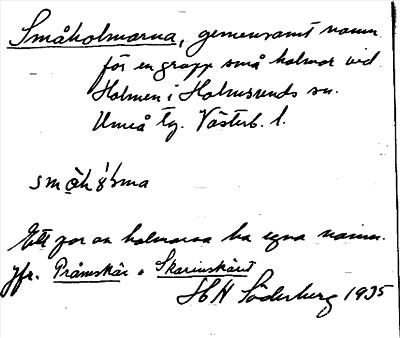 Småholmarna, gemensamt namn
för en grupp små holmar vid
Holmen i Holmsunds sn.
Umeå tg. Västerb. l.
Ett par av holmarna ha egna namn.
Jfr. Pråmskär o Skarinskäret
SBH Söderberg 1935